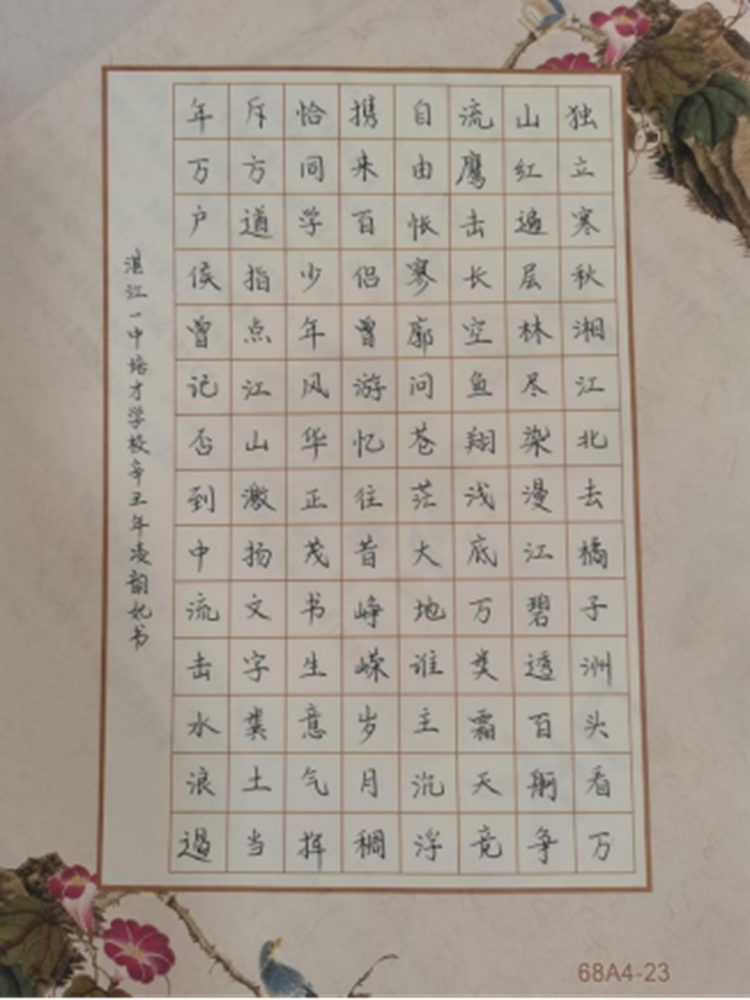 独立寒秋湘江北去橘子洲头看万
山红遍层林尽染漫江碧透百舸争
流鹰击长空鱼翔浅底万类霜天竞
自由怅寥廓问苍茫大地谁主沉浮
携来百侣曾游忆往昔峥嵘岁月稠
恰同学少年风华正茂书生意气挥
斥方遒指点江山激扬文字粪土当
年万户侯曾记否到中流击水浪遏
湛江一中培才学校辛丑年凌韵妃书
68A4-23